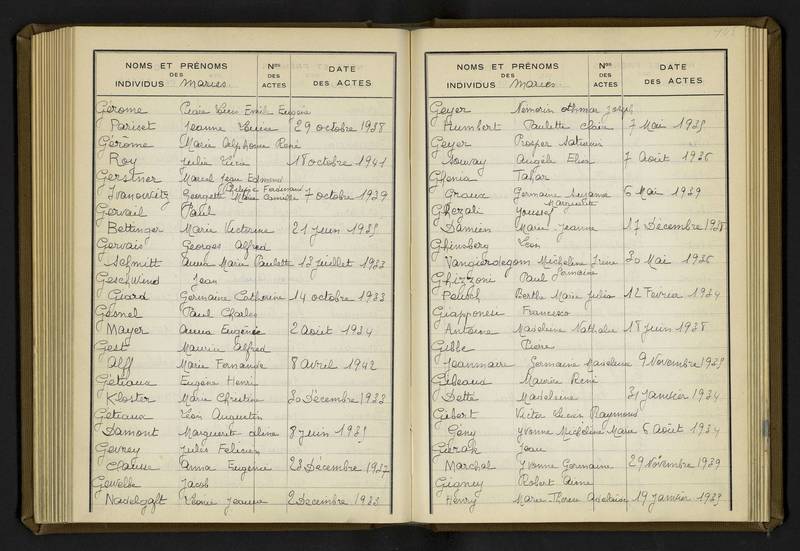 NOMS ET PRÉNOMS
DES
INDIVIDUS Mariés.
Nos
DES
ACTES
DATE
DES ACTES
Gérome Emile Eugène
Pariset Jeanne 29 octobre 1938
Gérôme Marie Alphonse René
Roy Julie 18 octobre 1941
Gerstner Marcel Jean Edmond
Philippe Ferdinand
Ivanowitz Georgette Marie Camille 7 octobre 1939
Gervail Paul
Bettinger Marie Victorine 21 juin 1935
Gervais Georges Alfred
Schmitt Marie Paulette 13 juillet 1933
Geschwind Jean
Giard Germaine Catherine 14 octobre 1933
Gesnel Paul Charles
Mayer Anna Eugénie 2 août 1934
Gest Maurice Alfred
Alff Marie Fernande 8 avril 1942
Gétiaux Eugène Henri
Kloster Marie Christine 30 Décembre 1933
Gétiaux Léon Augustin
Damont Marguerite Aline 8 juin 1935
Gevrey Jules Félicien
Clausse Anna Eugénie 28 Décembre 1937
Gewelbe Jacob
Nadelgaft Jeanne 2 Décembre 1933
NOMS ET PRÉNOMS
DES
INDIVIDUS Mariés.
Nos
DES
ACTES
DATE
DES ACTES
Geyer Nemorin Othmar Joseph
Humbert Paulette Claire 7 Mai 1935
Geyer Prosper
Angèle 7 Août 1936
Ghenia Tahar
Graux Germaine Suzanne 6 Mai 1939
Marguerite
Ghezali Youssef
Damien Marie Jeanne 17 Décembre 1938
Ghinsberg Léon
Vangierdegom Micheline Irène 30 Mai 1936
Germaine
Ghizzoni Paul
Peusch Berthe Marie Julia 12 Février 1934
Giapponese Francesco
Antoine Madeleine Nathalie 18 juin 1938
Gibbe Pierre
Jeanmaire Germaine Madeleine 9 Novembre 1935
Gibeaux Maurice René
Dette Madeleine 31 janvier 1934
Gibert Victor Lucien Raymond
Gény Yvonne Micheline Marie 6 août 1934
Jean
Marchal Yvonne Germaine 29 Novembre 1939
Gigney Robert Aimé
Henry Marie Thérèse 19 janvier 1933